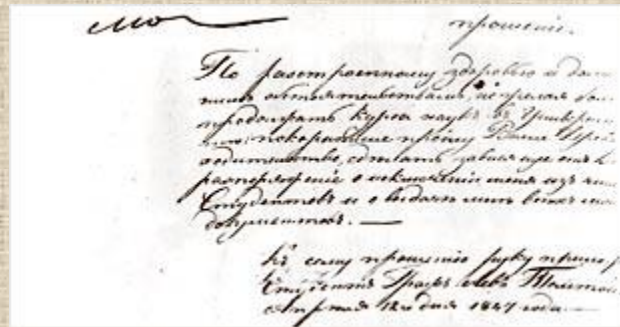 прошеніе.
По разстроенному здоровью и дом
нимъ обстоятельствамъ, не желая бол
продолжать курса наукъ въ Универ
покорнѣйше прошу Ваше
сдѣлать зависящее отъ
распоряженіе о исключеніи меня изъ чи
Студентовъ и о выдачи мнѣ всѣхъ мо
документов. —
Къ сему прошенію руку прило
Студентъ Графъ Левъ Толстой
апреля 12 дня 1847 года —